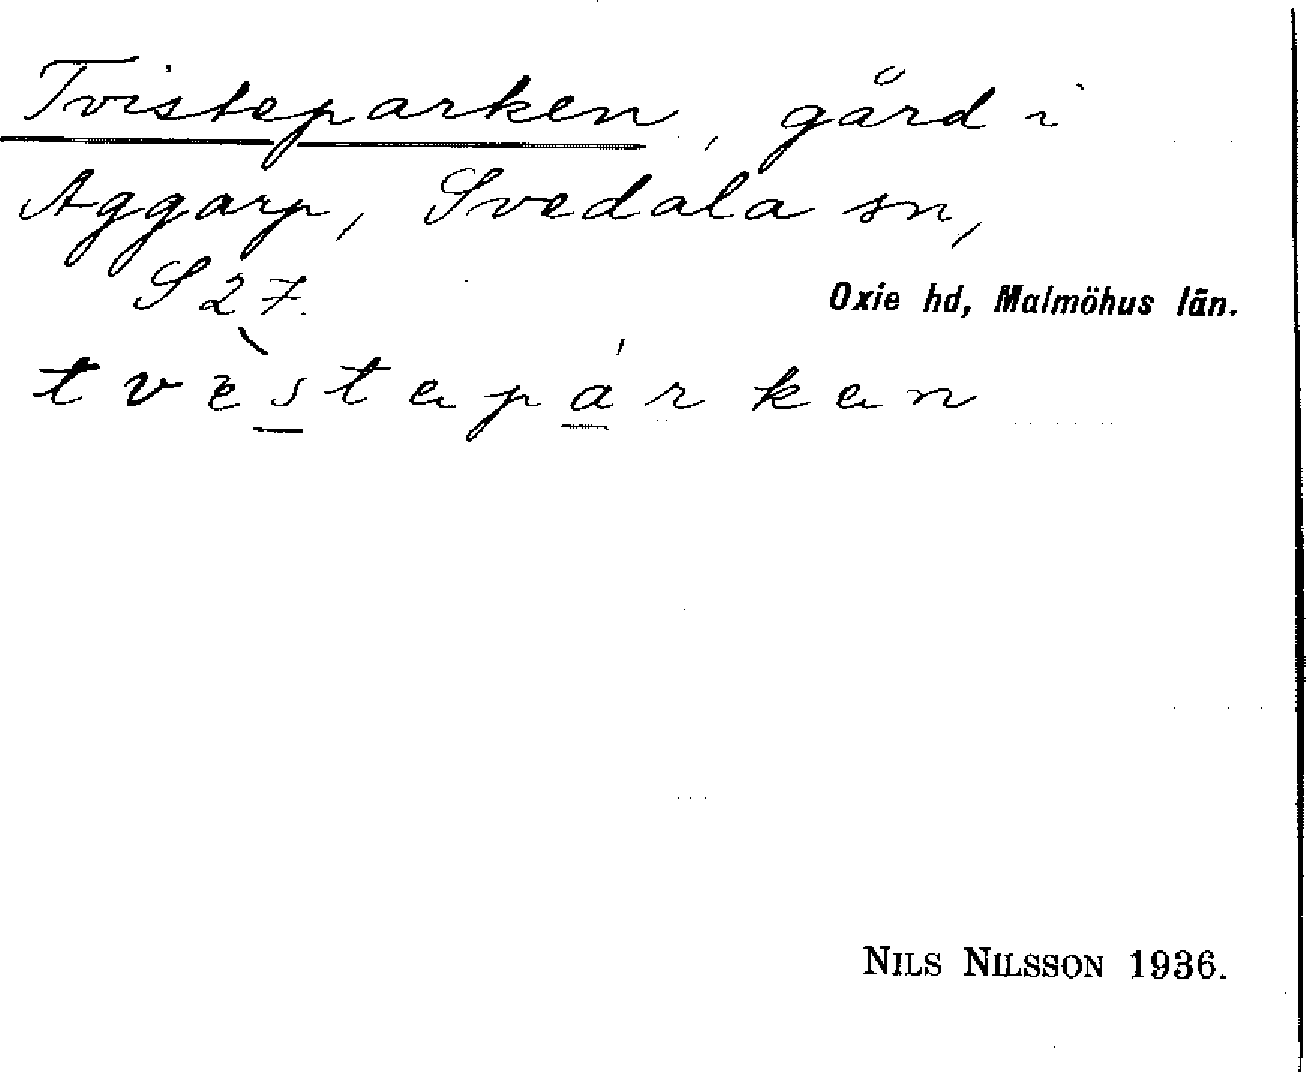 Tvisteparken, gård i
Aggarp, Svedala sn,
S 27.
Oxie hd, Malmöhus län.
tvèstapárkan
NILS NILSSON 1936.